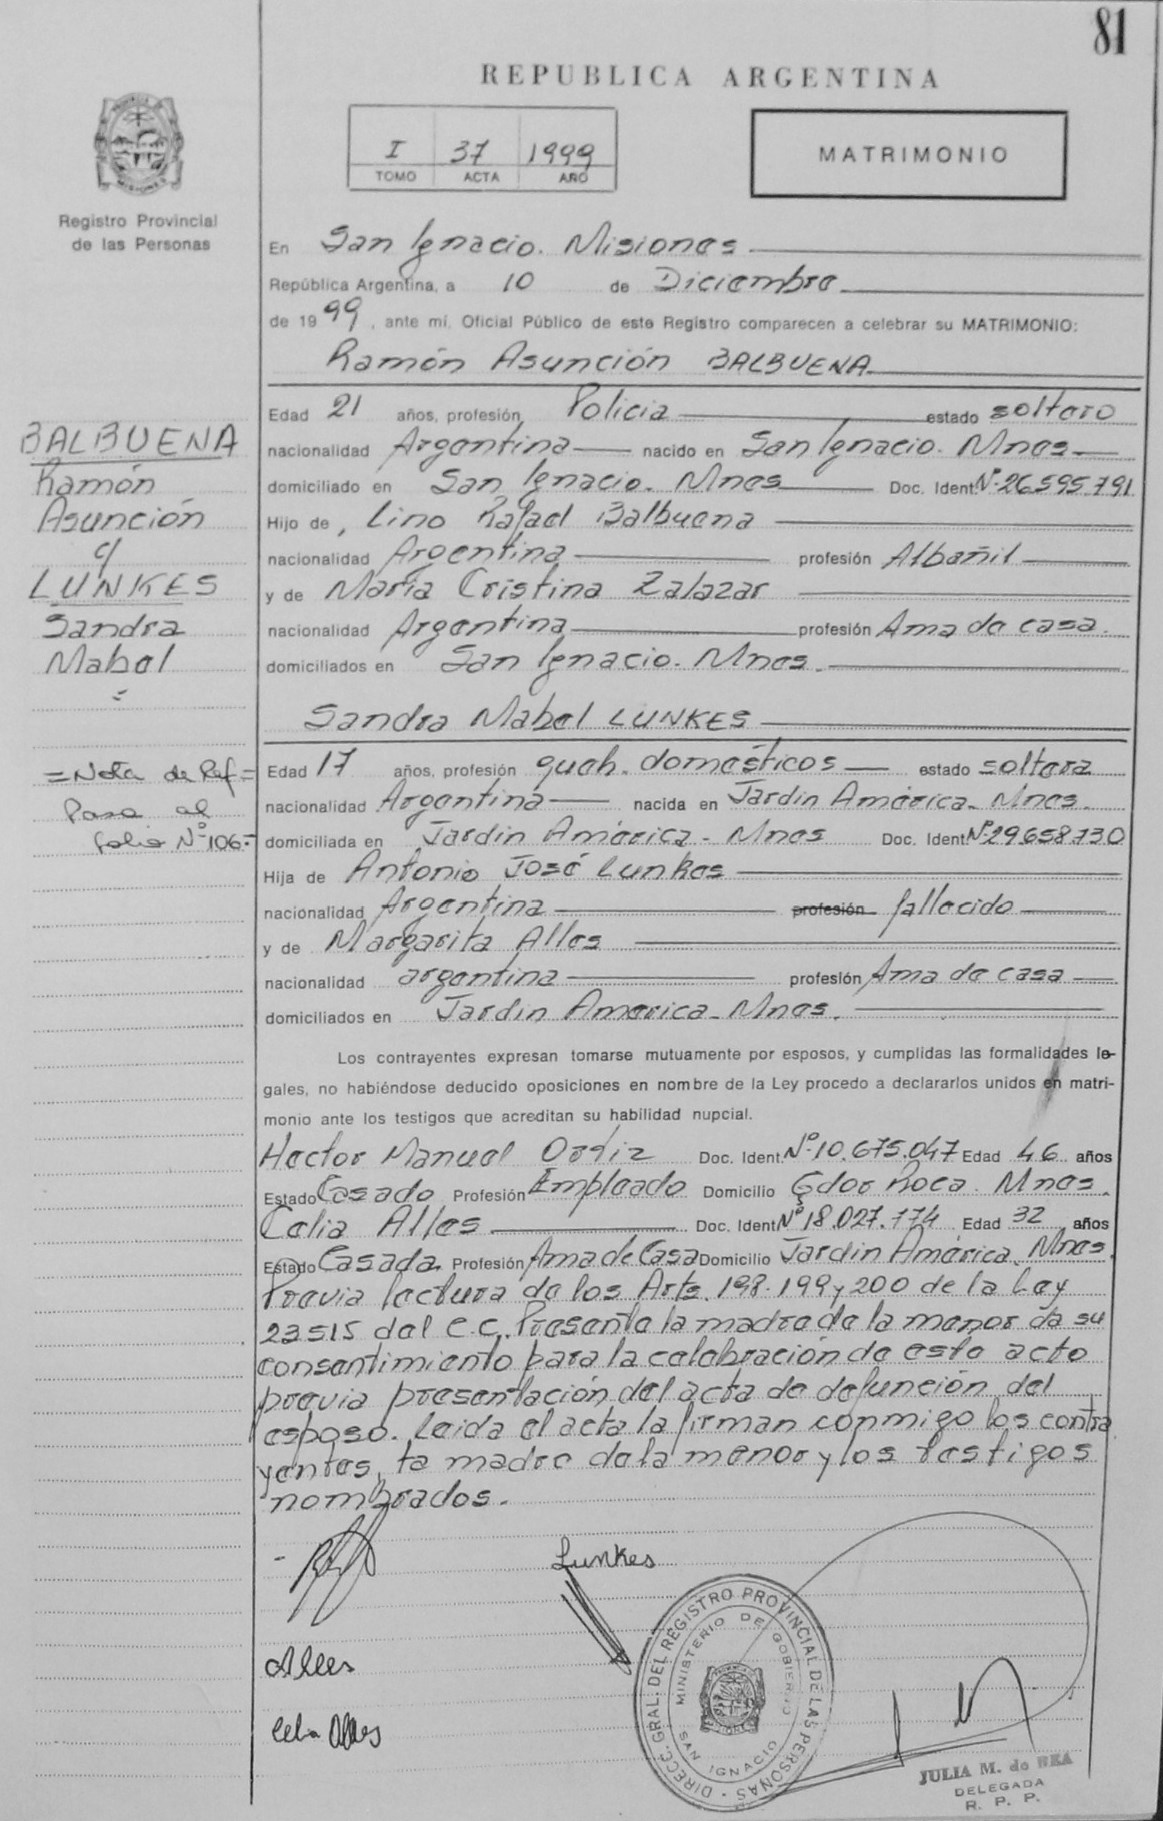 81
REPUBLICA ARGENTINA
I 37 1999
TOMO ACTA AÑO
MATRIMONIO
MISIONES
Registro Provincial
de las Personas
En San Ignacio. Misiones
República Argentina, a 10 de Diciembre
de 1999, ante mí, Oficial Público de este Registro comparecen a celebrar su MATRIMONIO:
Ramón Asunción BALBUENA
Edad 21 años, profesión Policia estado soltero
nacionalidad Argentina nacido en San Ignacio. Mnes
domiciliado en San Ignacio. Mnes Doc. Ident. Nº 26.595.791
Hijo de, Lino Rafael Balbuena
nacionalidad Argentina profesión Albañil
y de María Cristina Zalazar
nacionalidad Argentina profesión Ama de casa.
domiciliados en San Ignacio. Mnes.
BALBUENA
Ramón
Asunción
c/
LUNKES
Sandra
Mabel
=
Sandra Mabel LUNKES
Edad 17 años, profesión queh. domésticos estado soltera
nacionalidad Argentina nacida en Jardin América. Mnes.
domiciliada en Jardin América - Mnes Doc. Ident. Nº 29.658.730
Hija de Antonio José Lunkes
nacionalidad Argentina profesión fallecido
y de Margarita Alles
nacionalidad argentina profesión Ama de casa
domiciliados en Jardin America - Mnes.
= Nota de Ref =
Pasa al
folio Nº 106.-
Los contrayentes expresan tomarse mutuamente por esposos, y cumplidas las formalidades le-
gales, no habiéndose deducido oposiciones en nombre de la Ley procedo a declararlos unidos en matri-
monio ante los testigos que acreditan su habilidad nupcial.
Hector Manuel Ortiz Doc. Ident. Nº 10.675.047 Edad 46 años
Estado Casado Profesión Empleado Domicilio Gdor Roca. Mnes.
Celia Alles Doc. Ident Nº 18.027.174 Edad 32 años
Estado Casada Profesión Ama de Casa Domicilio Jardin América. Mnes.
Previa lectura de los Arts. 198. 199 y 200 de la Ley
23515 del C.C. Presente la madre de la menor da su
consentimiento para la celebración de este acto
previa presentación del acta de defunción del
esposo. Leida el acta la firman conmigo los contra
yentes, la madre de la menor y los testigos
nombrados.
Lunkes
Alles
Celia Alles
DIRECC. GRAL. DEL REGISTRO PROVINCIAL DE LAS PERSONAS
MINISTERIO DE GOBIERNO
SAN IGNACIO
JULIA M. de REA
DELEGADA
R. P. P.